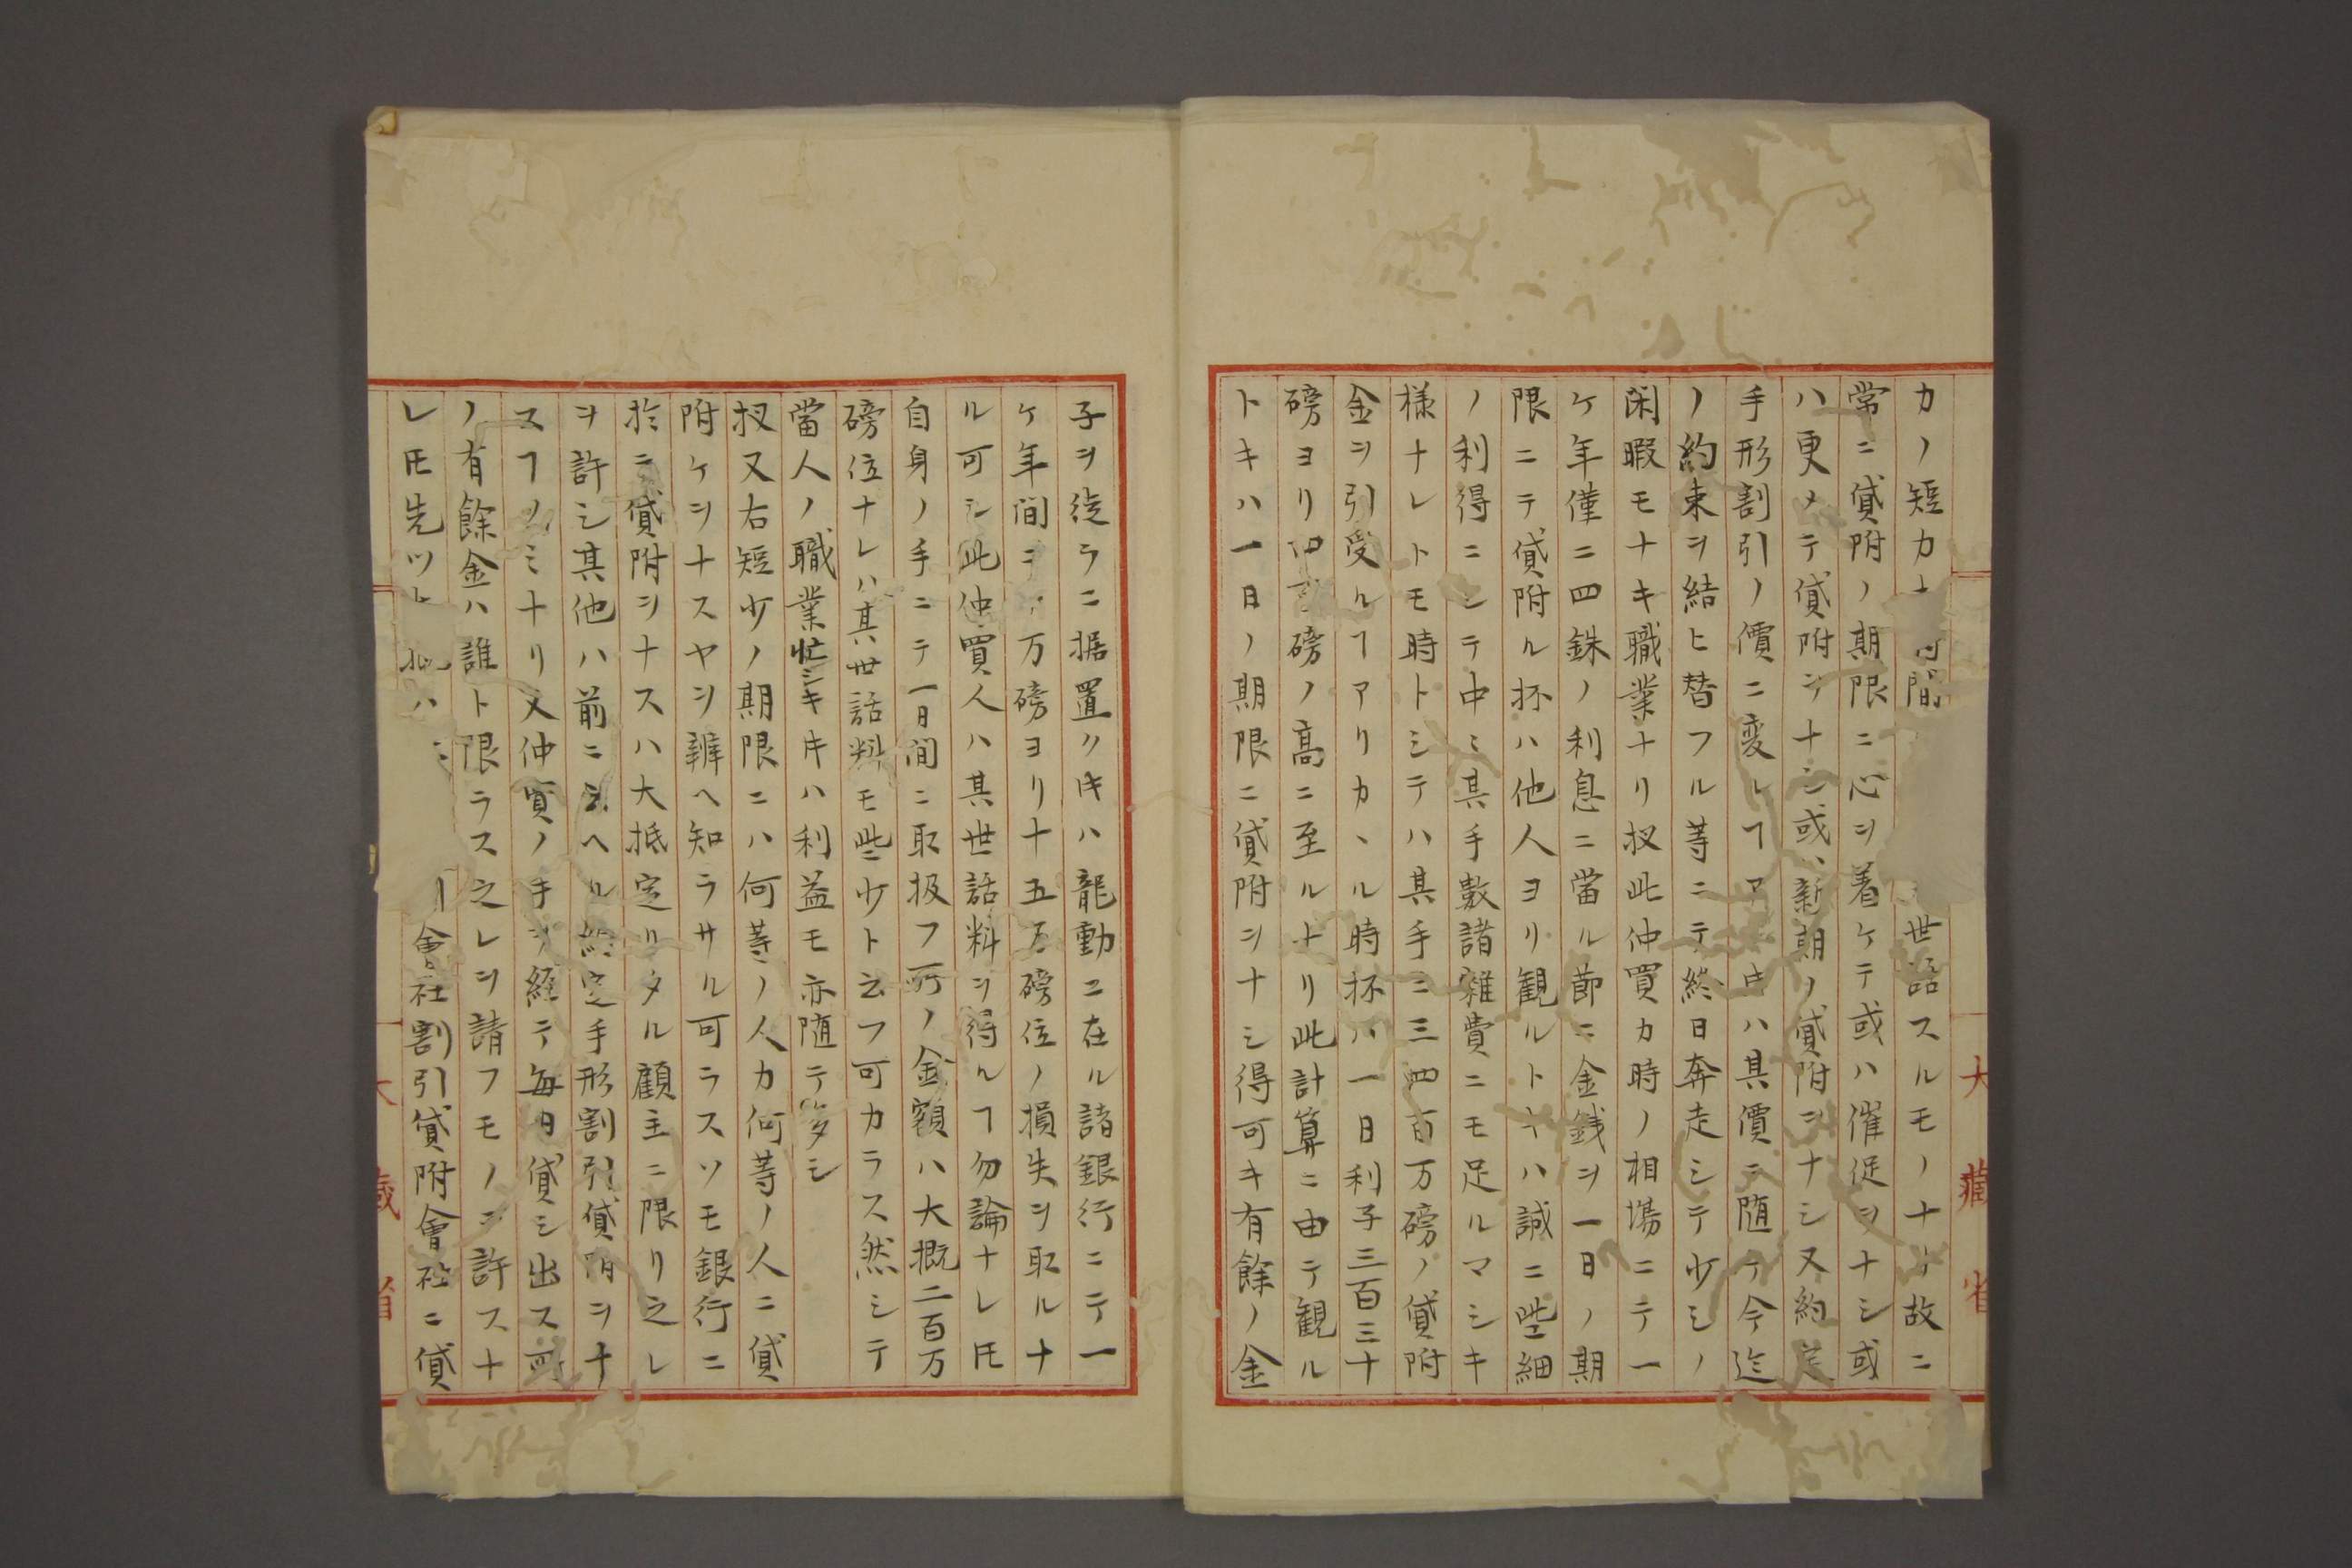 カノ短カ
世話スルモノナリ故ニ
常ニ貸附ノ期限ニ心ヲ着ケテ或ハ催促ヲナシ或
ハ更メテ貸附ヲナシ或ハ新期ノ貸附ヲナシ又約定
手形割引ノ價ニ変レヿアルキハ其價ニ随テ今迄
ノ約束ヲ結ヒ替フル等ニテ終日奔走シテ少シノ
閑暇モナキ職業ナリ扨此仲買カ時ノ相場ニテ一
ケ年僅ニ四銖ノ利息ニ當ル節ニ金銭ヲ一日ノ期
限ニテ貸附ル抔ハ他人ヨリ観ルトキハ誠ニ些細
ノ利得ニシテ中ミ其手數諸雑費ニモ足ルマシキ
様ナレトモ時トシテハ其手ニ三四百万磅ノ貸附
金ヲ引受ルヿアリカヽル時抔ハ一日利子三百三十
磅ヨリ磅ノ高ニ至ルナリ此計算ニ由テ観ル
トキハ一日ノ期限ニ貸附ヲナシ得可キ有餘ノ金
大藏省
子ヲ徒ラニ据置クキハ龍動ニ在ル諸銀行ニテ一
ケ年間ニ万磅ヨリ十五万磅位ノ損失ヲ取ルナ
ル可シ此仲買人ハ其世話料ヲ得ルヿ勿論ナレ𪜈
自身ノ手ニテ一日間ニ取扱フ所ノ金額ハ大概二百万
磅位ナレハ其世話料モ些少ト云フ可カラス然シテ
當人ノ職業忙シキキハ利益モ亦随テ多シ
扨又右短少ノ期限ニハ何等ノ人カ何等ノ人ニ貸
附ケヲナスヤヲ辨ヘ知ラサル可ラスソモ銀行ニ
於ニ貸附ヲナスハ大抵定リタル顧主ニ限リ之レ
ヲ許シ其他ハ前ニ云ヘル約定手形割引貸附ヲナ
スヿノミナリ又仲買ノ手ヲ経テ毎日貸シ出ス所
ノ有餘金ハ誰ト限ラス之レヲ請フモノニ許スナ
レ𪜈先ツ
會社割引貸附會社ニ貸
大藏省